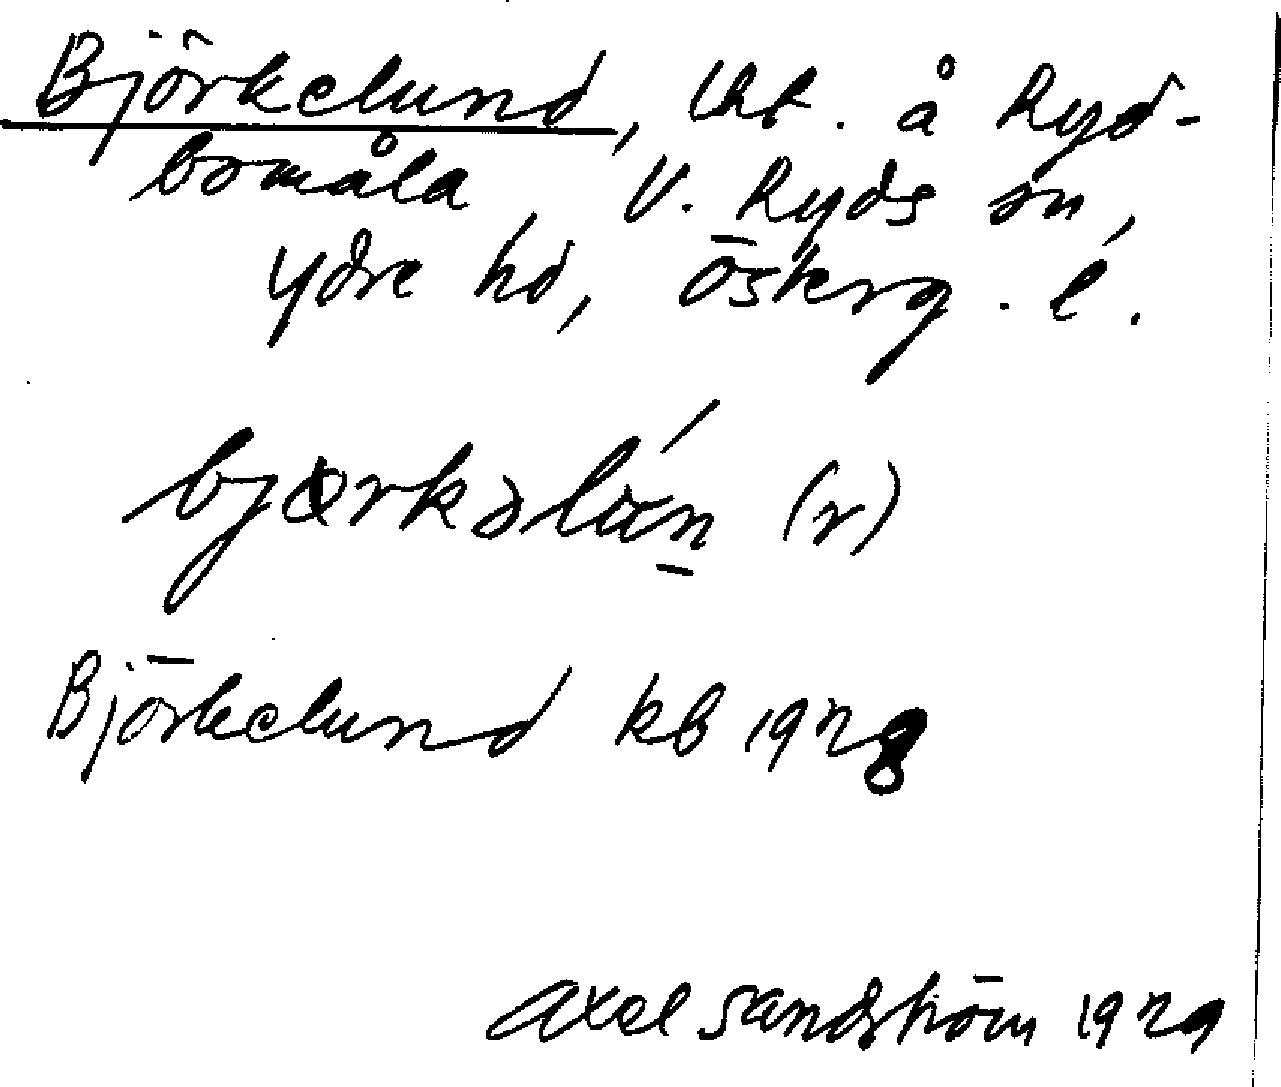 Björkelund, lht. å Ryd-
bomåla, V. Ryds sn,
Ydre hd, Österg. l.
(r)
Björkelund kb 1928
Axel Sandström 1929